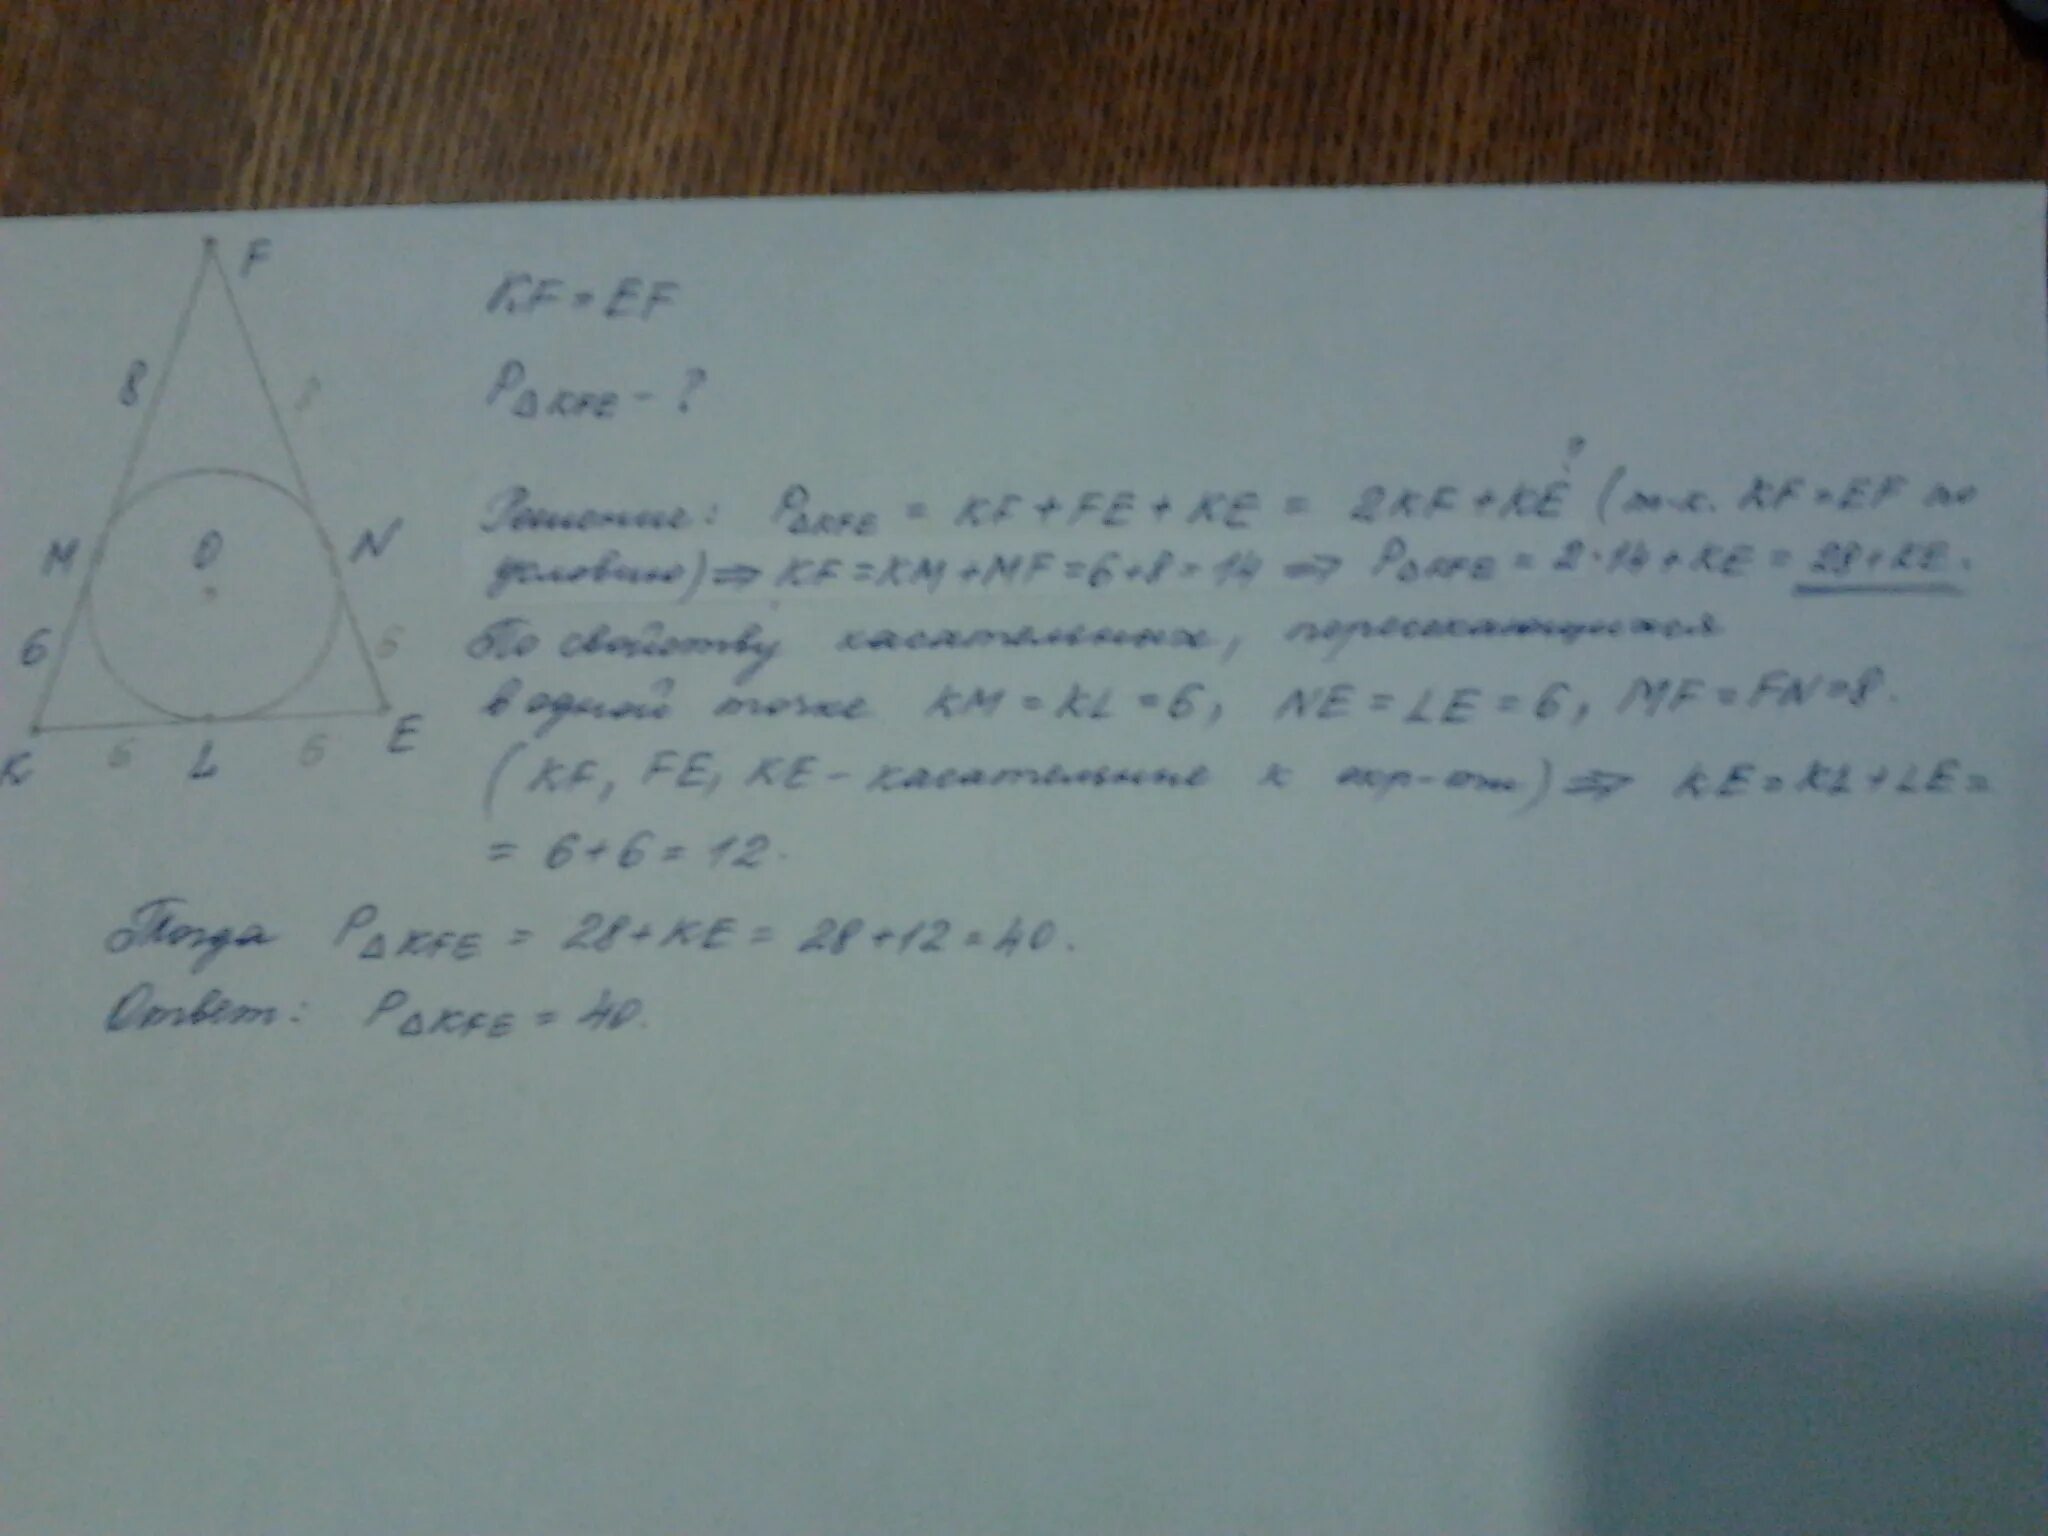 F
KF = EF
8
8
P△KFE - ?
?
Решение: P△KFE = KF + FE + KE = 2KF + KE (т.к. KF = EF по
M O N
условию) ⇒ KF = KM + MF = 6 + 8 = 14 ⇒ P△KFE = 2·14 + KE = 28 + KE.
6 6
По свойству касательных, пересекающихся
в одной точке KM = KL = 6, NE = LE = 6, MF = FN = 8.
K 6 L 6 E
(KF, FE, KE - касательные к окр-ти) ⇒ KE = KL + LE =
= 6 + 6 = 12.
Тогда P△KFE = 28 + KE = 28 + 12 = 40.
Ответ: P△KFE = 40.